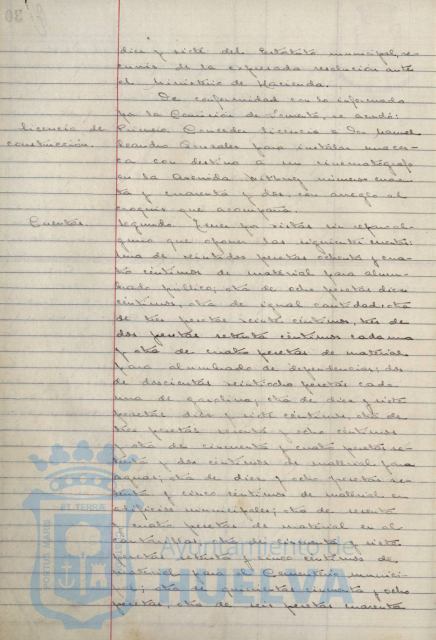 diez y siete del Estatuto municipal, re-
curso de la expresada resolución ante
el Ministerio de Hacienda.
De conformidad con lo informado
por la Comisión de Fomento, se acordó:
Licencia de construcción.
Primero Conceder licencia a Don Manuel
Leandro Gonzalez para instalar una ca-
ca con destino a un cinematógrafo
en la Avenida número cuaren-
ta y cuarenta y dos, con arreglo al
croquis que acompaña.
Cuentas.
Segundo. Tener por vistas sin reparo al-
guno que oponer las siguientes cuentas:
Una de veintidos pesetas ochenta y cua-
tro céntimos de material para alum-
brado público; otra de ocho pesetas diez
céntimos; otra de igual cantidad; otra
de tres pesetas veinte céntimos, tres de
dos pesetas setenta céntimos cada una
y otra de cuatro pesetas de material
para alumbrado de dependencias; dos
de doscientas veintiocho pesetas cada
una de gasolina; otra de diez y siete
pesetas diez y siete céntimos; otra de
tres pesetas y ocho céntimos
y otra de cincuenta y cuatro pesetas se-
tenta y dos céntimos de material para
aguas; otra de diez y ocho pesetas
y cinco céntimos de material en
edificios municipales; otra de
y cuatro pesetas de material en el
otra de cincuenta y siete
pesetas y cinco céntimos de
material para el Cementerio munici-
pal; otra de quinientas cincuenta y ocho
pesetas; otra de seis pesetas cuarenta
PORTUS MARIS
ET TERRAE
Ayuntamiento de
HUELVA